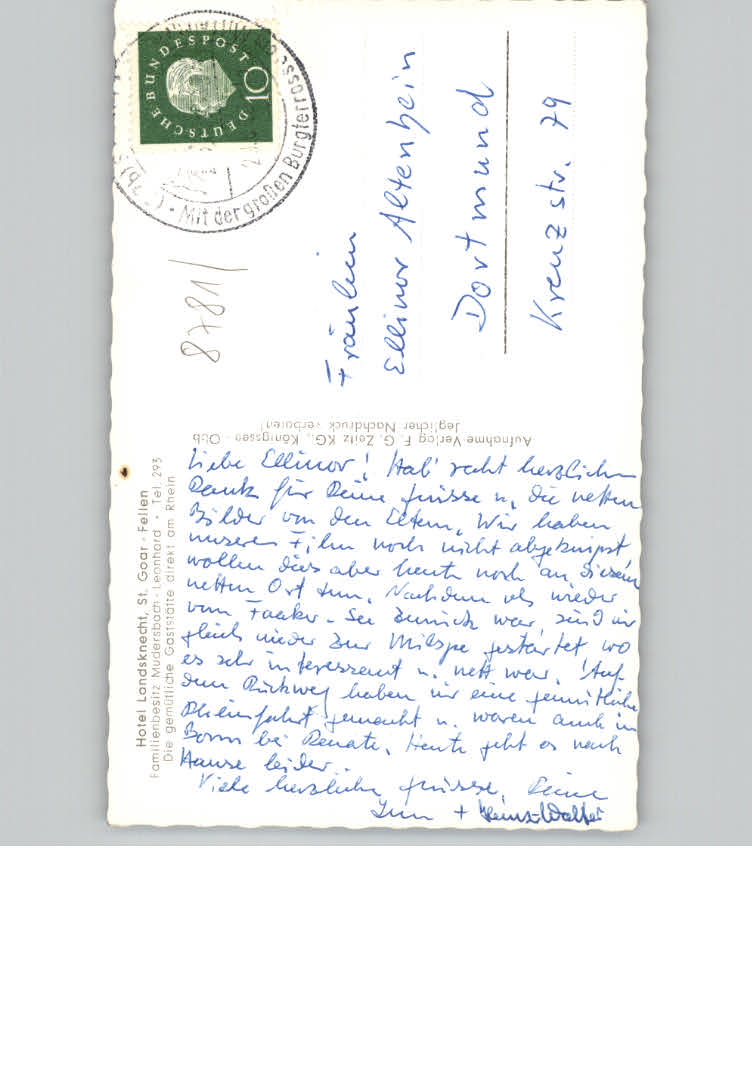 Hotel Landsknecht, St. Goar - Fellen
Familienbesitz Mudersbach-Leonhard · Tel. 293
Die gemütliche Gaststätte direkt am Rhein
Liebe Ellinor! Hab' recht herzlichen
Dank für Deine Grüsse u. die netten
Bilder von den Eltern. Wir haben
unseren Film noch nicht abgeknipst
wollen dies aber heute noch an diesem
netten Ort tun. Nachdem ich wieder
vom Faaker-See zurück war, sind wir
gleich wieder zur gestartet, wo
es sehr interessant u. nett war. Auf
dem Rückweg haben wir eine gemütliche
Rheinfahrt gemacht u. waren auch in
Bonn bei Renate. Heute geht es nach
Hause leider.
Viele herzliche Grüsse, Deine
+ Heinz-Walter
Aufnahme-Verlag F. G. Zeitz KG., Königssee - Obb
Jeglicher Nachdruck verboten!
DEUTSCHE BUNDESPOST
10
Mit der großen Burgterrasse
8781/
Fräulein
Ellinor Altenhein
Dortmund
Kreuzstr. 79